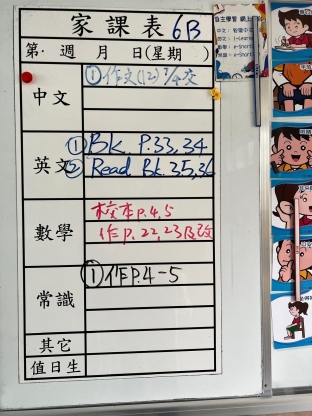 家課表 6B
第 週 月 日(星期 )
中文
①作文(12) 7/4交
英文
①Bk P.33,34
②Read Bk.35,36
數學
校本P.4,5
作P.22,23及改
常識
①作P.4-5
其它
值日生